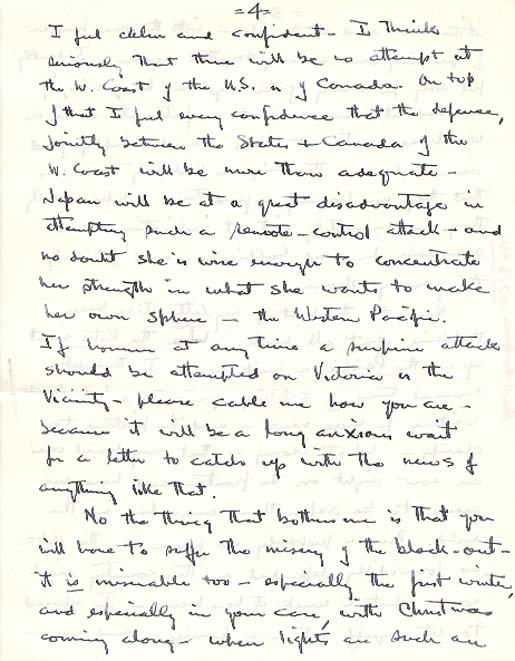 =4=
I feel calm and confident - I think
seriously that there will be no attempt at
the W. Coast of the U.S. or of Canada. On top
of that I feel every confidence that the defense,
jointly between the States + Canada of the
W. Coast will be more than adequate -
Japan will be at a great disadvantage in
attempting such a remote-control attack - and
no doubt she is wise enough to concentrate
her strength in what she wants to make
her own sphere - the Western Pacific.
If however at anytime a surprise attack
should be attempted on Victoria or the
Vicinity - please cable me how you are -
because it will be a long anxious wait
for a letter to catch up with the news of
anything like that.
No the thing that bothers me is that you
will have to suffer the misery of the black-out -
It is miserable too - especially the first winter,
and especially in your case, with Christmas
coming along - when lights are such an